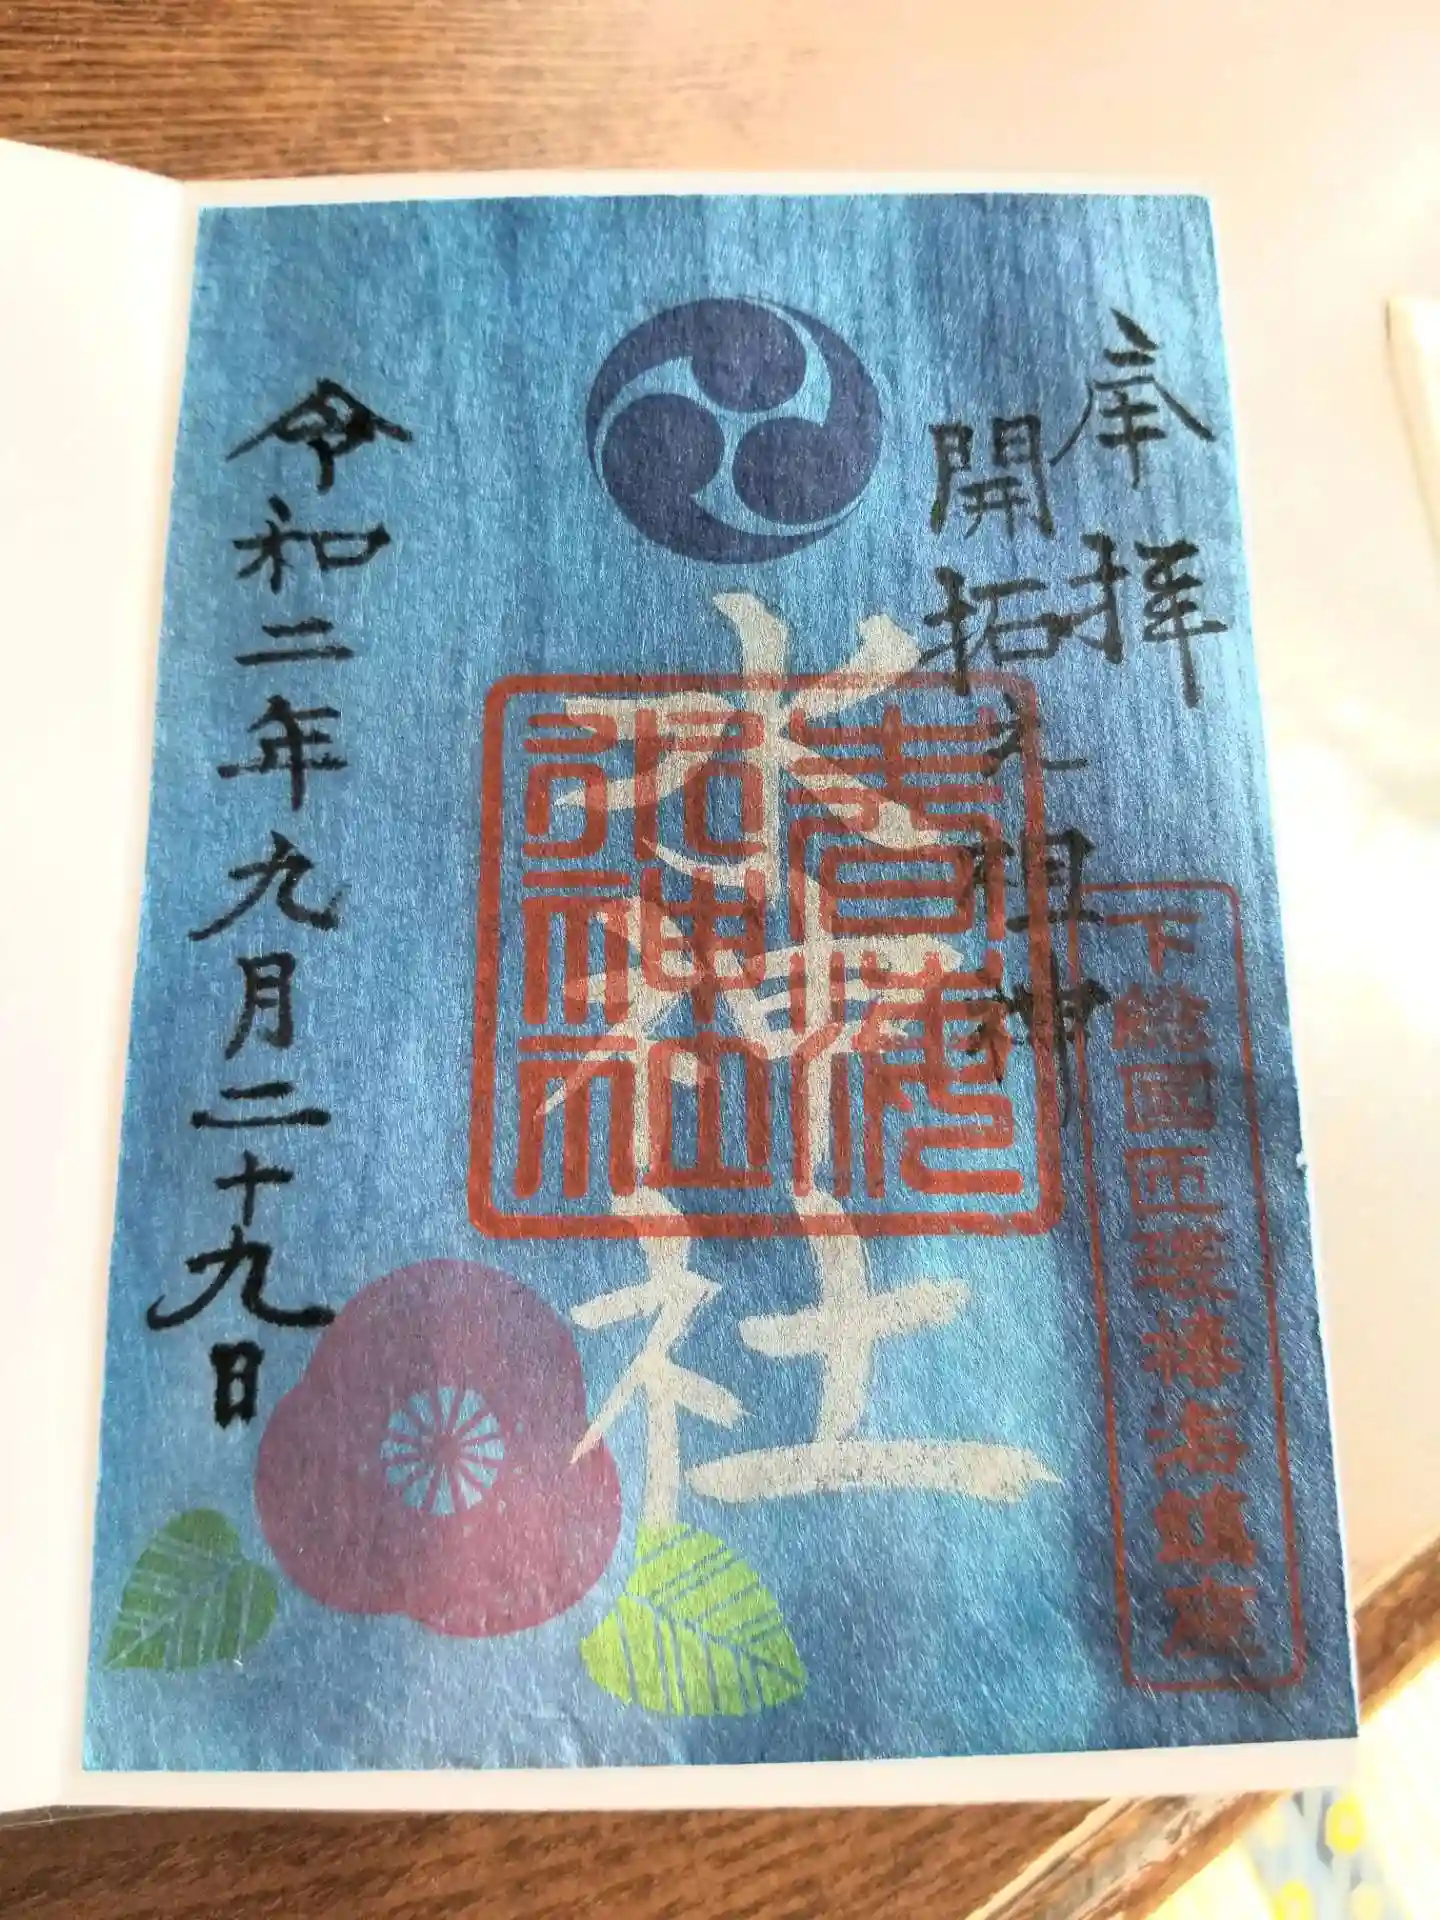 奉拝
開拓之祖神
下総國匝瑳椿海鎮座
水神社
令和二年九月二十九日